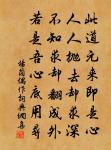 此道元来即是心
人人抛去却求深
不知求却翻成外
若是吾心底用尋
楊簡偶作